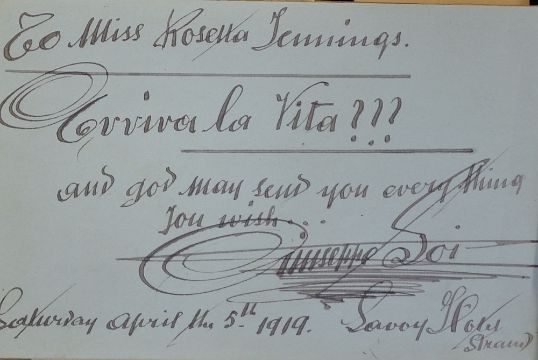 To Miss Rosetta Jennings.
Evviva la Vita???
and god may send you everything
you wish...
Giuseppe Soi
Saturday April the 5th 1919. Savoy Hotel
Strand